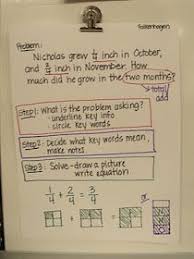 Problem:
Nicholas grew 1/4 inch in October,
and 2/4 inch in November. How
much did he grow in the two months?
total/
add
Step 1: What is the problem asking?
- underline key info
- circle key words
Step 2: Decide what key words mean,
make notes
Step 3: Solve - draw a picture
write equation
1/4 + 2/4 = 3/4
or
+ =